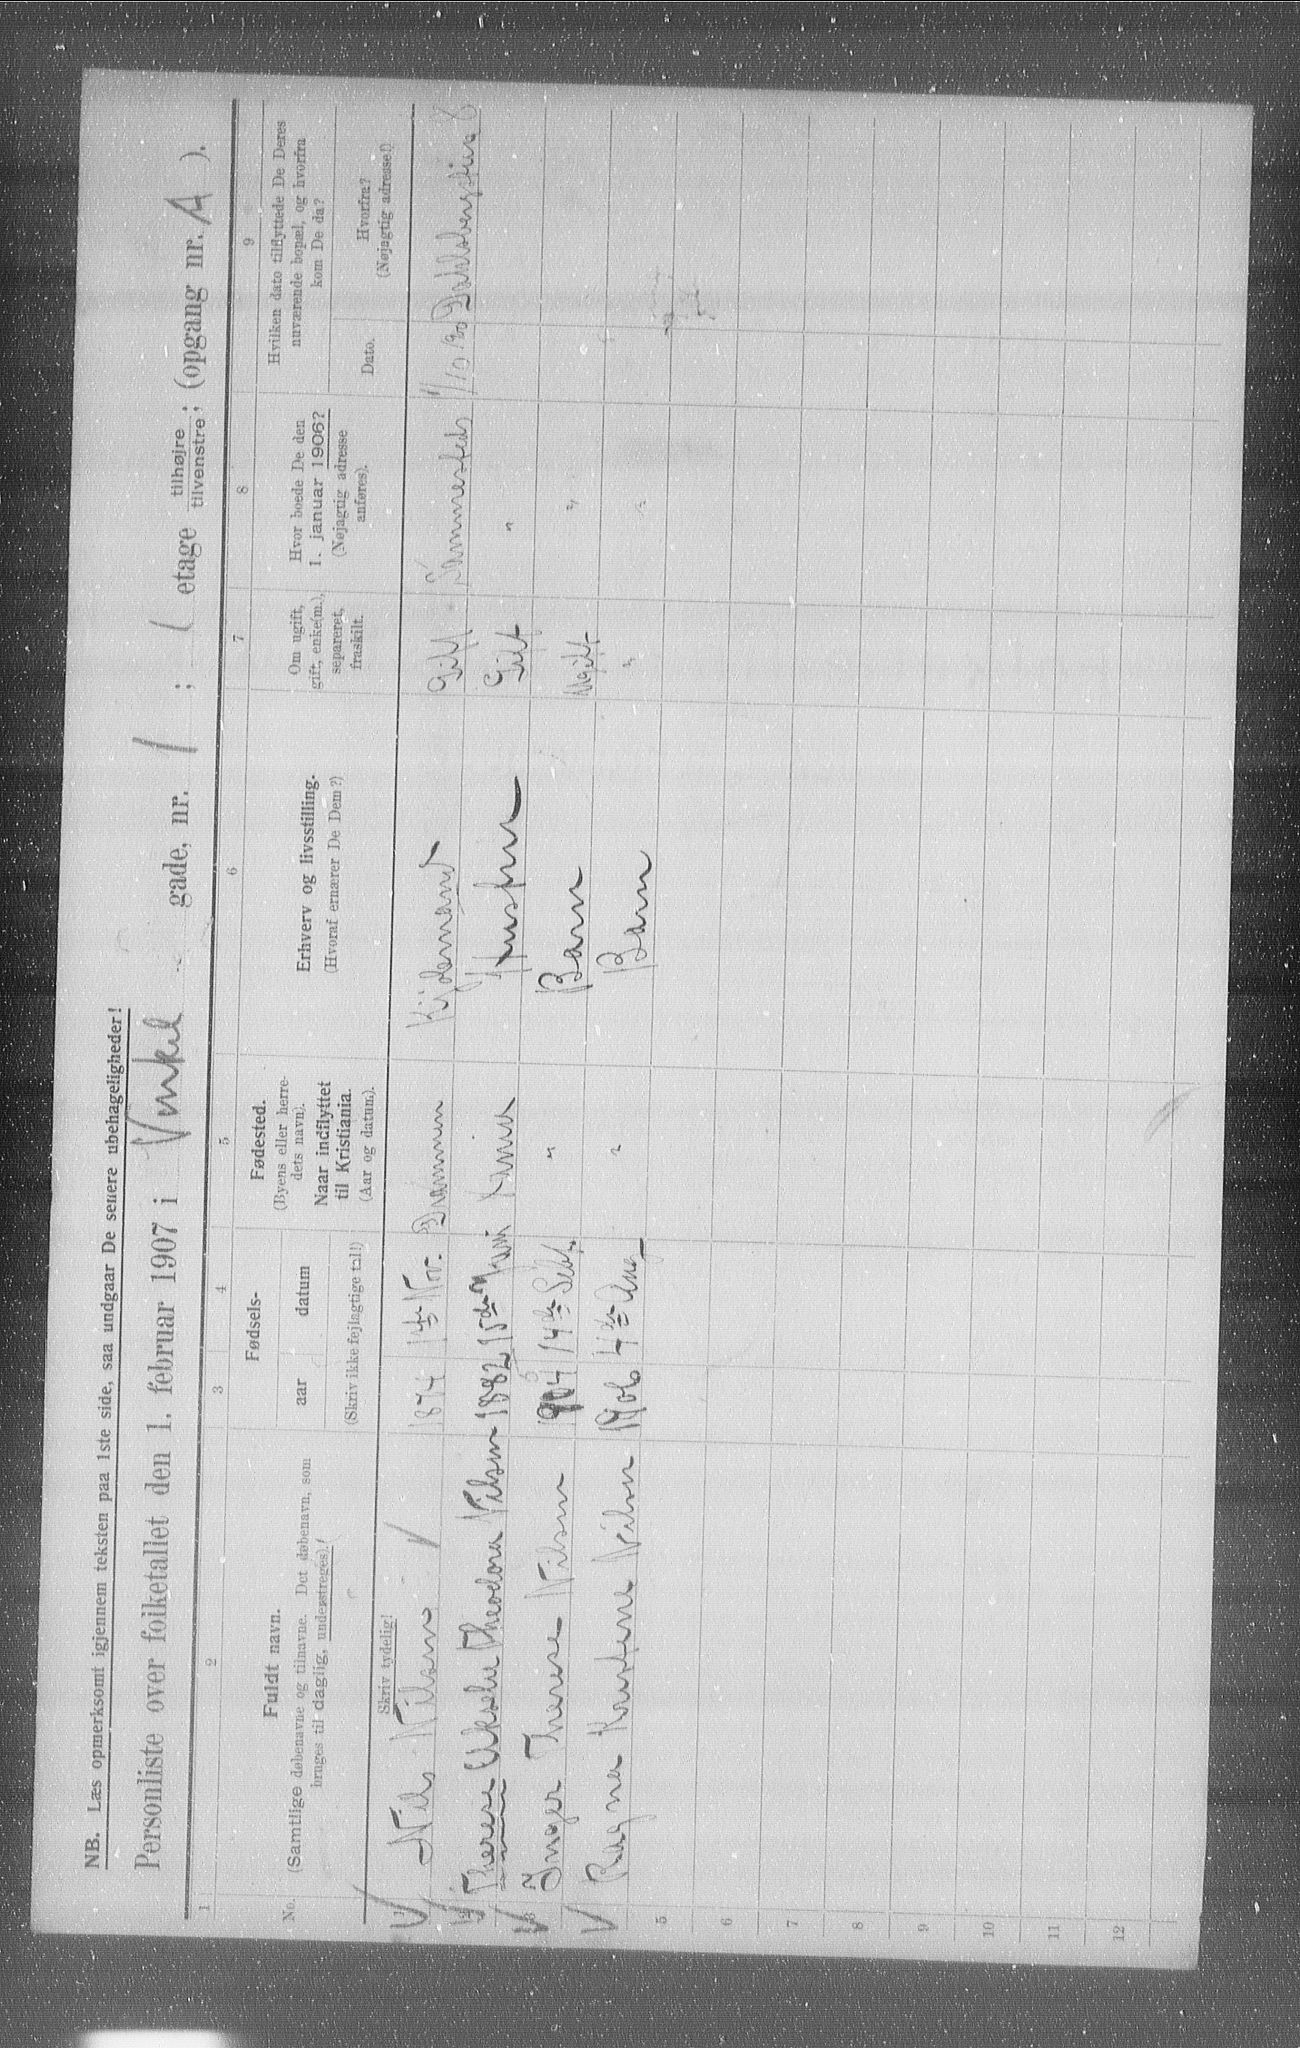 NB. Læs opmerksomt igjennem teksten paa 1ste side, saa undgaar De senere ubehageligheder!
Personliste over folketallet den 1. februar 1907 i Vinkel gade, nr. 1 ; 1 etage tilhøjre tilvenstre; (opgang nr. A ).
1 2 3 4 5 6 7 8 9
No.
Fuldt navn.
(Samtlige døbenavne og tilnavne. Det døbenavn, som
bruges til daglig, understreges).
Skriv tydelig!
Fødsels-
aar datum
(Skriv ikke fejlagtige tal!)
Fødested.
(Byens eller herre-
dets navn).
Naar indflyttet
til Kristiania.
(Aar og datum).
Erhverv og livsstilling.
(Hvoraf ernærer De Dem?)
Om ugift,
gift, enke(m.),
separeret,
fraskilt.
Hvor boede De den
1. januar 1906?
(Nøjagtig adresse
anføres).
Hvilken dato tilflyttede De Deres
nuværende bopæl, og hvorfra
kom De da?
Dato.
Hvorfra?
(Nøjagtig adresse!)
1 Nils Nilsen 1874 Nov. Drammen Gift Sammesteds
2 Therese Theodora Nilsen 1882 15de Juni Gift "
3 Inger Therese Nilsen 1904 14de Sept. " Barn Ugift "
Ragna Kristine Nilsen 1906 4de Aug " Barn " "
5
6
7
8
9
10
11
12